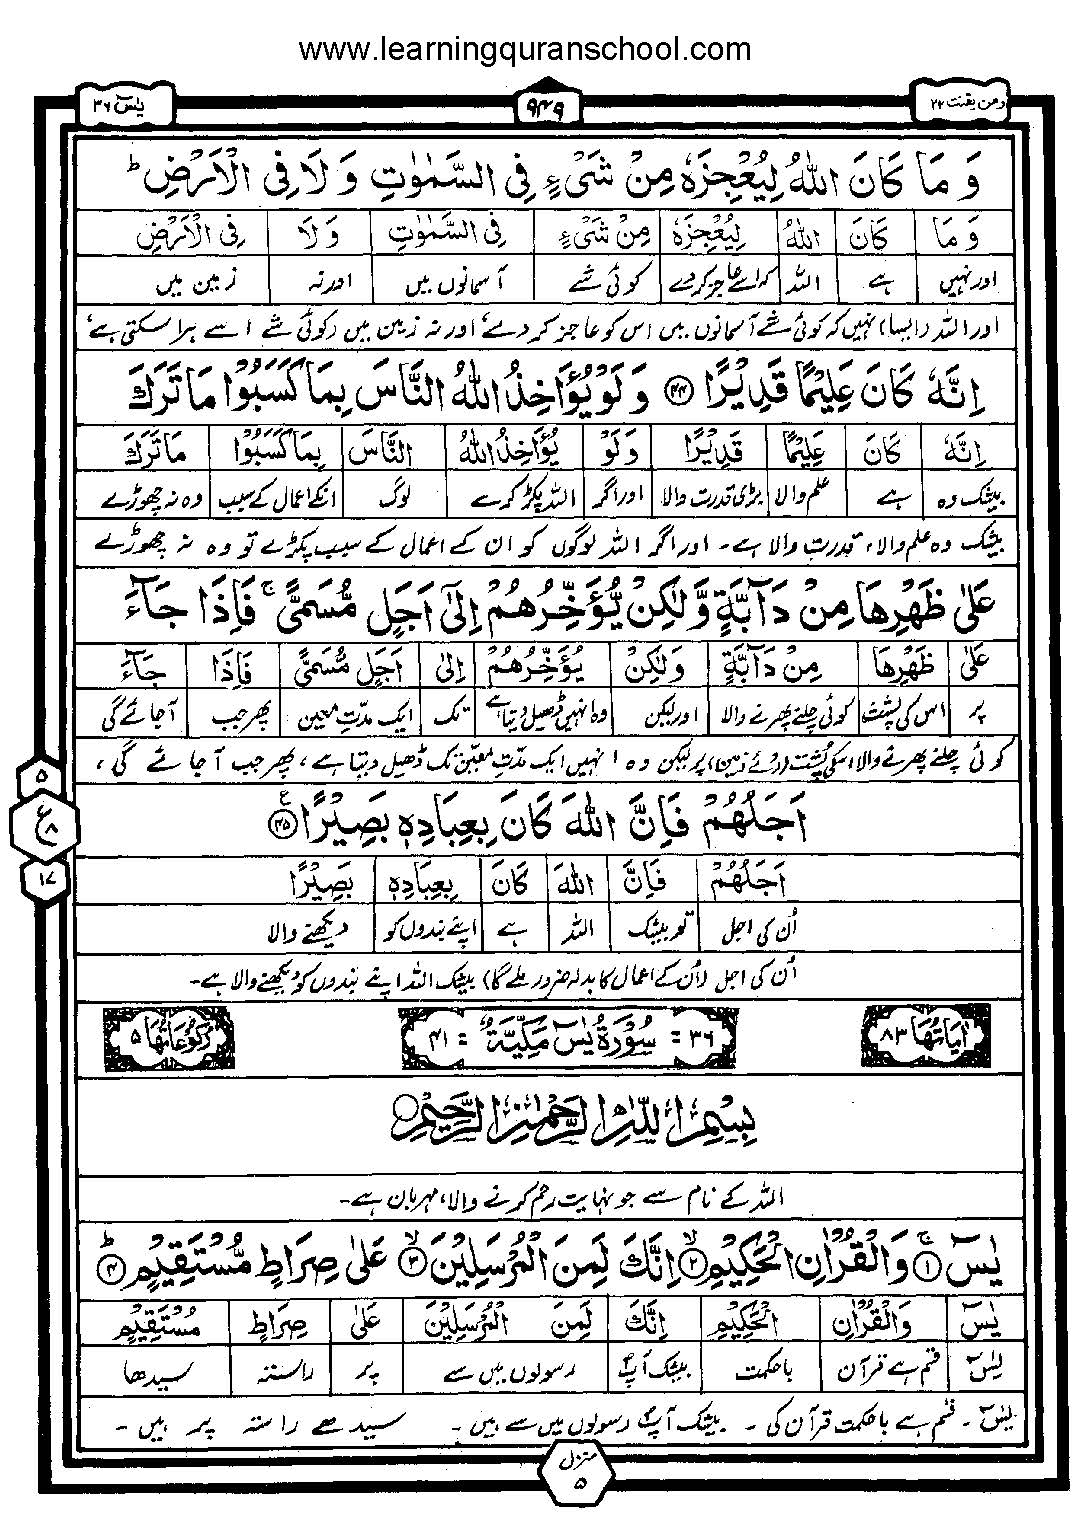 www.learningquranschool.com
ومن یقنت ۲۲
۹۴۹
یٰسٓ ۳۶
وَ مَا كَانَ اللّٰهُ لِیُعْجِزَهٗ مِنْ شَیْءٍ فِی السَّمٰوٰتِ وَ لَا فِی الْاَرْضِ ؕ
وَ مَا كَانَ اللّٰهُ لِیُعْجِزَهٗ مِنْ شَیْءٍ فِی السَّمٰوٰتِ وَ لَا فِی الْاَرْضِ
اور نہیں ہے اللہ کہ اسے عاجز کر دے کوئی شے آسمانوں میں اور نہ زمین میں
اور اللہ (ایسا) نہیں کہ کوئی شے آسمانوں میں اس کو عاجز کر دے، اور نہ زمین میں (کوئی شے اسے ہرا سکتی ہے،
اِنَّهٗ كَانَ عَلِیْمًا قَدِیْرًا ﴿۴۴﴾ وَ لَوْ یُؤَاخِذُ اللّٰهُ النَّاسَ بِمَا كَسَبُوْا مَا تَرَكَ
اِنَّهٗ كَانَ عَلِیْمًا قَدِیْرًا وَ لَوْ یُؤَاخِذُ اللّٰهُ النَّاسَ بِمَا كَسَبُوْا مَا تَرَكَ
بیشک وہ ہے علم والا بڑی قدرت والا اور اگر اللہ پکڑ کرے لوگ انکے اعمال کے سبب وہ نہ چھوڑے
بیشک وہ علم والا، قدرت والا ہے۔ اور اگر اللہ لوگوں کو ان کے اعمال کے سبب پکڑے تو وہ نہ چھوڑے
عَلٰی ظَهْرِهَا مِنْ دَآبَّةٍ وَّ لٰكِنْ یُّؤَخِّرُهُمْ اِلٰۤی اَجَلٍ مُّسَمًّی ۚ فَاِذَا جَآءَ
عَلٰی ظَهْرِهَا مِنْ دَآبَّةٍ وَ لٰكِنْ یُؤَخِّرُهُمْ اِلٰی اَجَلٍ مُّسَمًّی فَاِذَا جَآءَ
پر اس کی پشت کوئی چلنے پھرنے والا اور لیکن وہ انہیں ڈھیل دیتا ہے تک ایک مدّتِ معین پھر جب آجائے گی
کوئی چلنے پھرنے والا اسکی پُشت (روئے زمین) پر لیکن وہ انہیں ایک مدّتِ معیّن تک ڈھیل دیتا ہے، پھر جب آجائے گی،
اَجَلُهُمْ فَاِنَّ اللّٰهَ كَانَ بِعِبَادِهٖ بَصِیْرًا ﴿۴۵﴾
۵
ع ۸
۱۷
اَجَلُهُمْ فَاِنَّ اللّٰهَ كَانَ بِعِبَادِهٖ بَصِیْرًا
اُن کی اجل تو بیشک اللہ ہے اپنے بندوں کو دیکھنے والا
اُن کی اجل (اُن کے اعمال کا بدلہ ضرور ملے گا) بیشک اللہ اپنے بندوں کو دیکھنے والا ہے۔
اٰیاتُهَا ۸۳
۳۶ = سُوْرَةُ یٰسٓ مَكِّیَّةٌ = ۴۱
رُكُوْعَاتُهَا ۵
بِسْمِ اللّٰهِ الرَّحْمٰنِ الرَّحِیْمِ
اللہ کے نام سے جو نہایت رحم کرنے والا، مہربان ہے۔
یٰسٓ ۚ﴿۱﴾ وَ الْقُرْاٰنِ الْحَكِیْمِ ۙ﴿۲﴾ اِنَّكَ لَمِنَ الْمُرْسَلِیْنَ ۙ﴿۳﴾ عَلٰی صِرَاطٍ مُّسْتَقِیْمٍ ؕ﴿۴﴾
یٰسٓ وَ الْقُرْاٰنِ الْحَكِیْمِ اِنَّكَ لَمِنَ الْمُرْسَلِیْنَ عَلٰی صِرَاطٍ مُسْتَقِیْمٍ
یٰسٓ قسم ہے قرآن باحکمت بیشک آپؐ رسولوں میں سے پر راستہ سیدھا
یٰسٓ۔ قسم ہے باحکمت قرآن کی۔ بیشک آپؐ رسولوں میں سے ہیں۔ سیدھے راستہ پر ہیں۔
منزل ۵